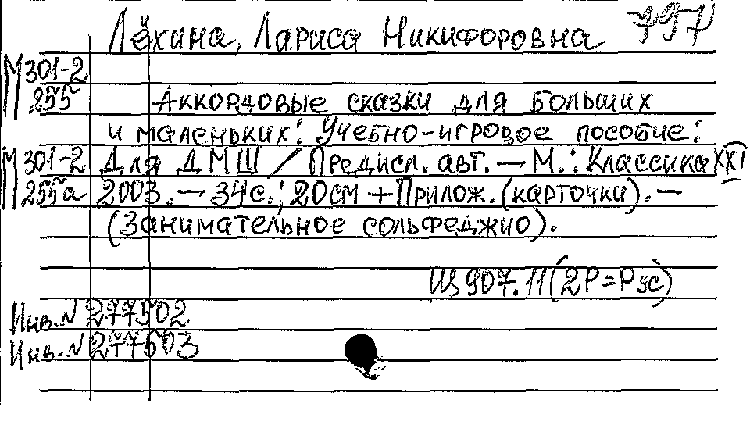 Лёхина, Лариса Никифоровна
М301-2
255 Аккордовые сказки для больших
и маленьких: Учебно-игровое пособие:
М301-2 Для ДМШ / Предисл. авт. — М.: Классика XXI
255а 2003. — 34с.; 20см + Прилож. (карточки). —
(Занимательное сольфеджио).
Щ907.11(2Р=Рус)
Инв. N 277502
Инв. N 277603